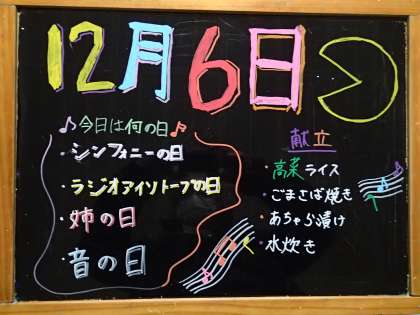 12月6日
今日は何の日
・シンフォニーの日
・ラジオアイソトープの日
・姉の日
・音の日
献立
・高菜ライス
・ごまさば焼き
・あちゃら漬け
・水炊き